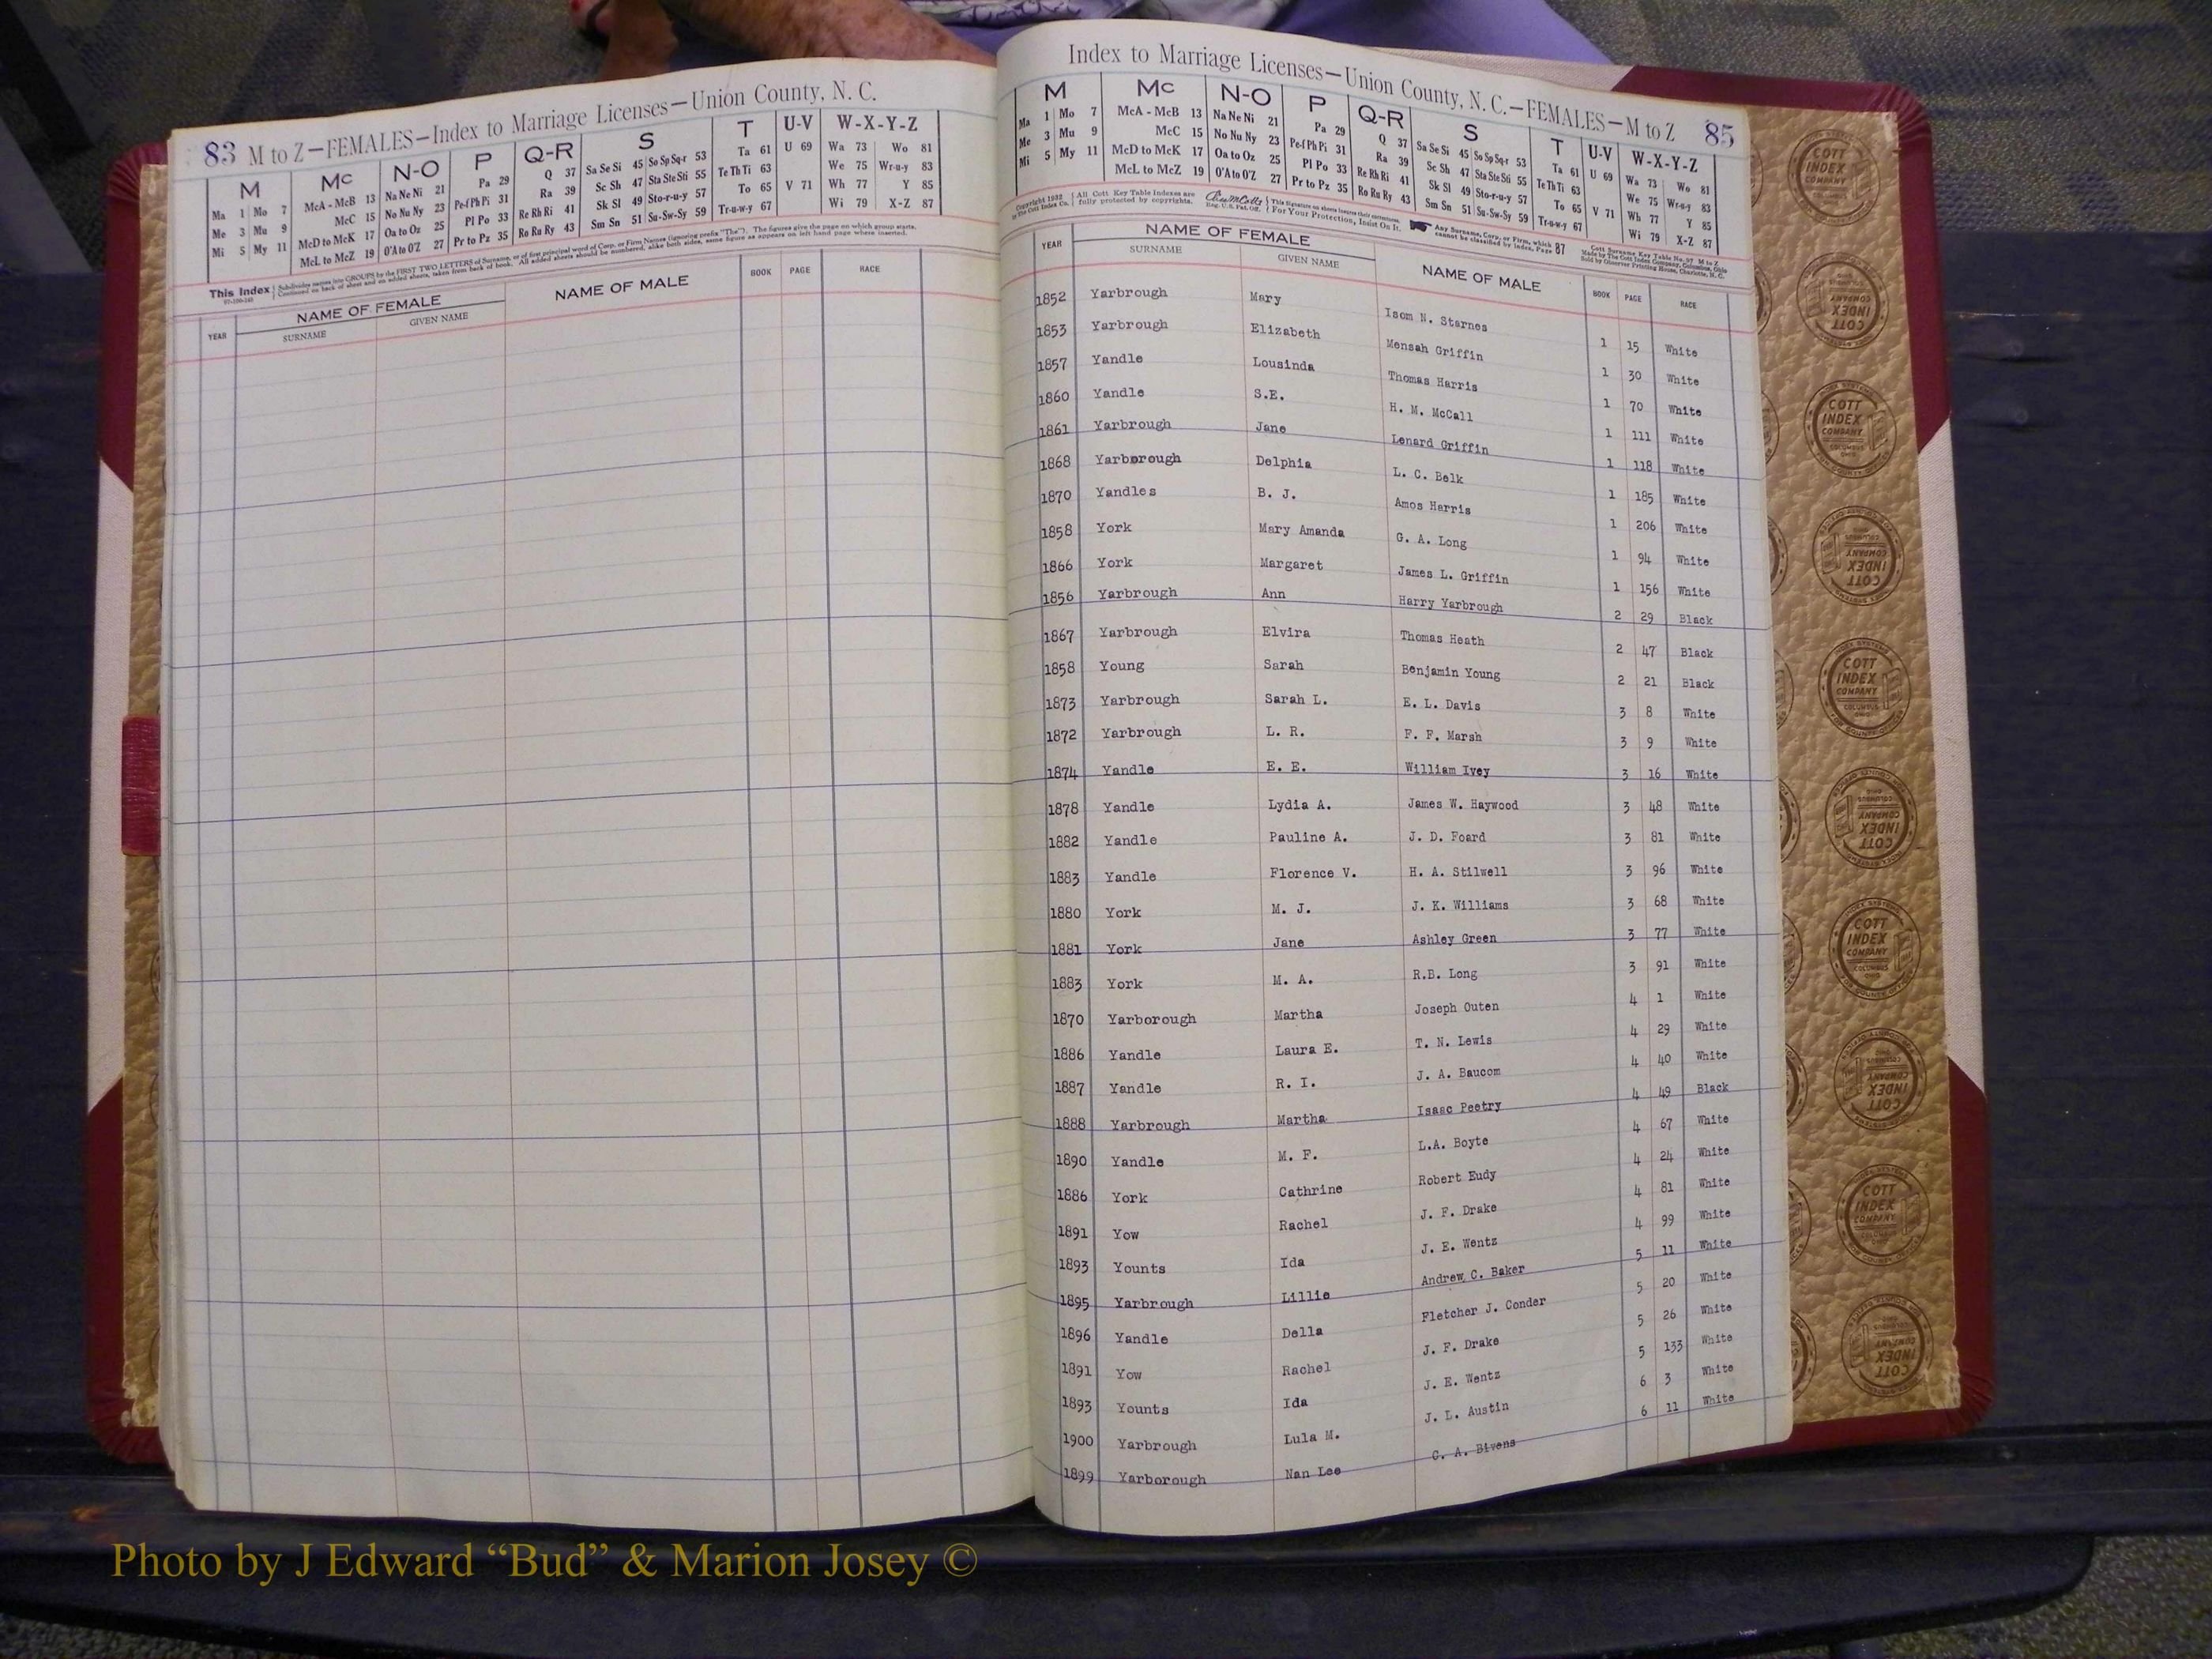 83 M to Z—FEMALES—Index to Marriage Licenses—Union County, N. C.
M Mc N-O P Q-R S T U-V W-X-Y-Z
Ma 1 Mo 7 McA - McB 13 Na Ne Ni 21 Pa 29 Q 37 Sa Se Si 45 So Sp Sq-r 53 Ta 61 U 69 Wa 73 Wo 81
Me 3 Mu 9 McC 15 No Nu Ny 23 Pe-f Ph Pi 31 Ra 39 Sc Sh 47 Sta Ste Sti 55 Te Th Ti 63 We 75 Wr-u-y 83
Mi 5 My 11 McD to McK 17 Oa to Oz 25 Pl Po 33 Re Rh Ri 41 Sk Sl 49 Sto-r-u-y 57 To 65 V 71 Wh 77 Y 85
McL to McZ 19 O'A to O'Z 27 Pr to Pz 35 Ro Ru Ry 43 Sm Sn 51 Su-Sw-Sy 59 Tr-u-w-y 67 Wi 79 X-Z 87
This Index Subdivides names into GROUPS by the FIRST TWO LETTERS of Surname, or of first principal word of Corp. or Firm Names (ignoring prefix "The"). The figures give the page on which group starts.
Continued on back of sheet and on added sheets, taken from back of book. All added sheets should be numbered, alike both sides, same figure as appears on left hand page where inserted.
YEAR NAME OF FEMALE NAME OF MALE BOOK PAGE RACE
SURNAME GIVEN NAME
Index to Marriage Licenses—Union County, N. C.—FEMALES—M to Z 85
M Mc N-O P Q-R S T U-V W-X-Y-Z
Ma 1 Mo 7 McA - McB 13 Na Ne Ni 21 Pa 29 Q 37 Sa Se Si 45 So Sp Sq-r 53 Ta 61 U 69 Wa 73 Wo 81
Me 3 Mu 9 McC 15 No Nu Ny 23 Pe-f Ph Pi 31 Ra 39 Sc Sh 47 Sta Ste Sti 55 Te Th Ti 63 We 75 Wr-u-y 83
Mi 5 My 11 McD to McK 17 Oa to Oz 25 Pl Po 33 Re Rh Ri 41 Sk Sl 49 Sto-r-u-y 57 To 65 V 71 Wh 77 Y 85
McL to McZ 19 O'A to O'Z 27 Pr to Pz 35 Ro Ru Ry 43 Sm Sn 51 Su-Sw-Sy 59 Tr-u-w-y 67 Wi 79 X-Z 87
Copyright 1932 All Cott Key Table Indexes are This Signature on sheets insures their correctness. Any Surname, Corp. or Firm, which Cott Surname Key Table No. 97 M to Z
by The Cott Index Co. fully protected by copyrights. Reg. U.S. Pat. Off. For Your Protection, Insist On It. cannot be classified by Index, Page 87 Made by The Cott Index Company, Columbus, Ohio
Sold by Observer Printing House, Charlotte, N. C.
YEAR NAME OF FEMALE NAME OF MALE BOOK PAGE RACE
SURNAME GIVEN NAME
1852 Yarbrough Mary Isom N. Starnes 1 15 White
1853 Yarbrough Elizabeth Mensah Griffin 1 30 White
1857 Yandle Lousinda Thomas Harris 1 70 White
1860 Yandle S.E. H. M. McCall 1 111 White
1861 Yarbrough Jane Lenard Griffin 1 118 White
1868 Yarbrough Delphia L. C. Belk 1 185 White
1870 Yandles B. J. Amos Harris 1 206 White
1858 York Mary Amanda G. A. Long 1 94 White
1866 York Margaret James L. Griffin 1 156 White
1856 Yarbrough Ann Harry Yarbrough 2 29 Black
1867 Yarbrough Elvira Thomas Heath 2 47 Black
1858 Young Sarah Benjamin Young 2 21 Black
1873 Yarbrough Sarah L. E. L. Davis 3 8 White
1872 Yarbrough L. R. F. F. Marsh 3 9 White
1874 Yandle E. E. William Ivey 3 16 White
1878 Yandle Lydia A. James W. Haywood 3 48 White
1882 Yandle Pauline A. J. D. Foard 3 81 White
1883 Yandle Florence V. H. A. Stilwell 3 96 White
1880 York M. J. J. K. Williams 3 68 White
1881 York Jane Ashley Green 3 77 White
1883 York M. A. R.B. Long 3 91 White
1870 Yarborough Martha Joseph Outen 4 1 White
1886 Yandle Laura E. T. N. Lewis 4 29 White
1887 Yandle R. I. J. A. Baucom 4 40 White
1888 Yarbrough Martha Isaac Peetry 4 49 Black
1890 Yandle M. F. L.A. Boyte 4 67 White
1886 York Cathrine Robert Eudy 4 24 White
1891 Yow Rachel J. F. Drake 4 81 White
1893 Younts Ida J. E. Wentz 4 99 White
1895 Yarbrough Lillie Andrew C. Baker 5 11 White
1896 Yandle Della Fletcher J. Conder 5 20 White
1891 Yow Rachel J. F. Drake 5 26 White
1893 Younts Ida J. E. Wentz 5 133 White
1900 Yarbrough Lula M. J. L. Austin 6 3 White
1899 Yarborough Nan Lee C. A. Bivens 6 11 White
COTT INDEX COMPANY COLUMBUS OHIO
Photo by J Edward “Bud” & Marion Josey ©